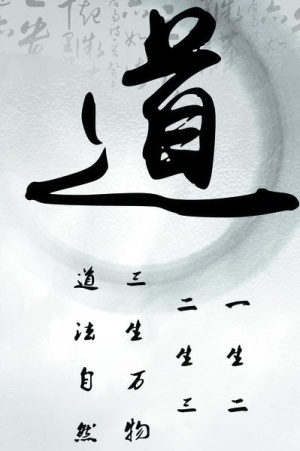 道
一生二
二生三
三生万物
道法自然